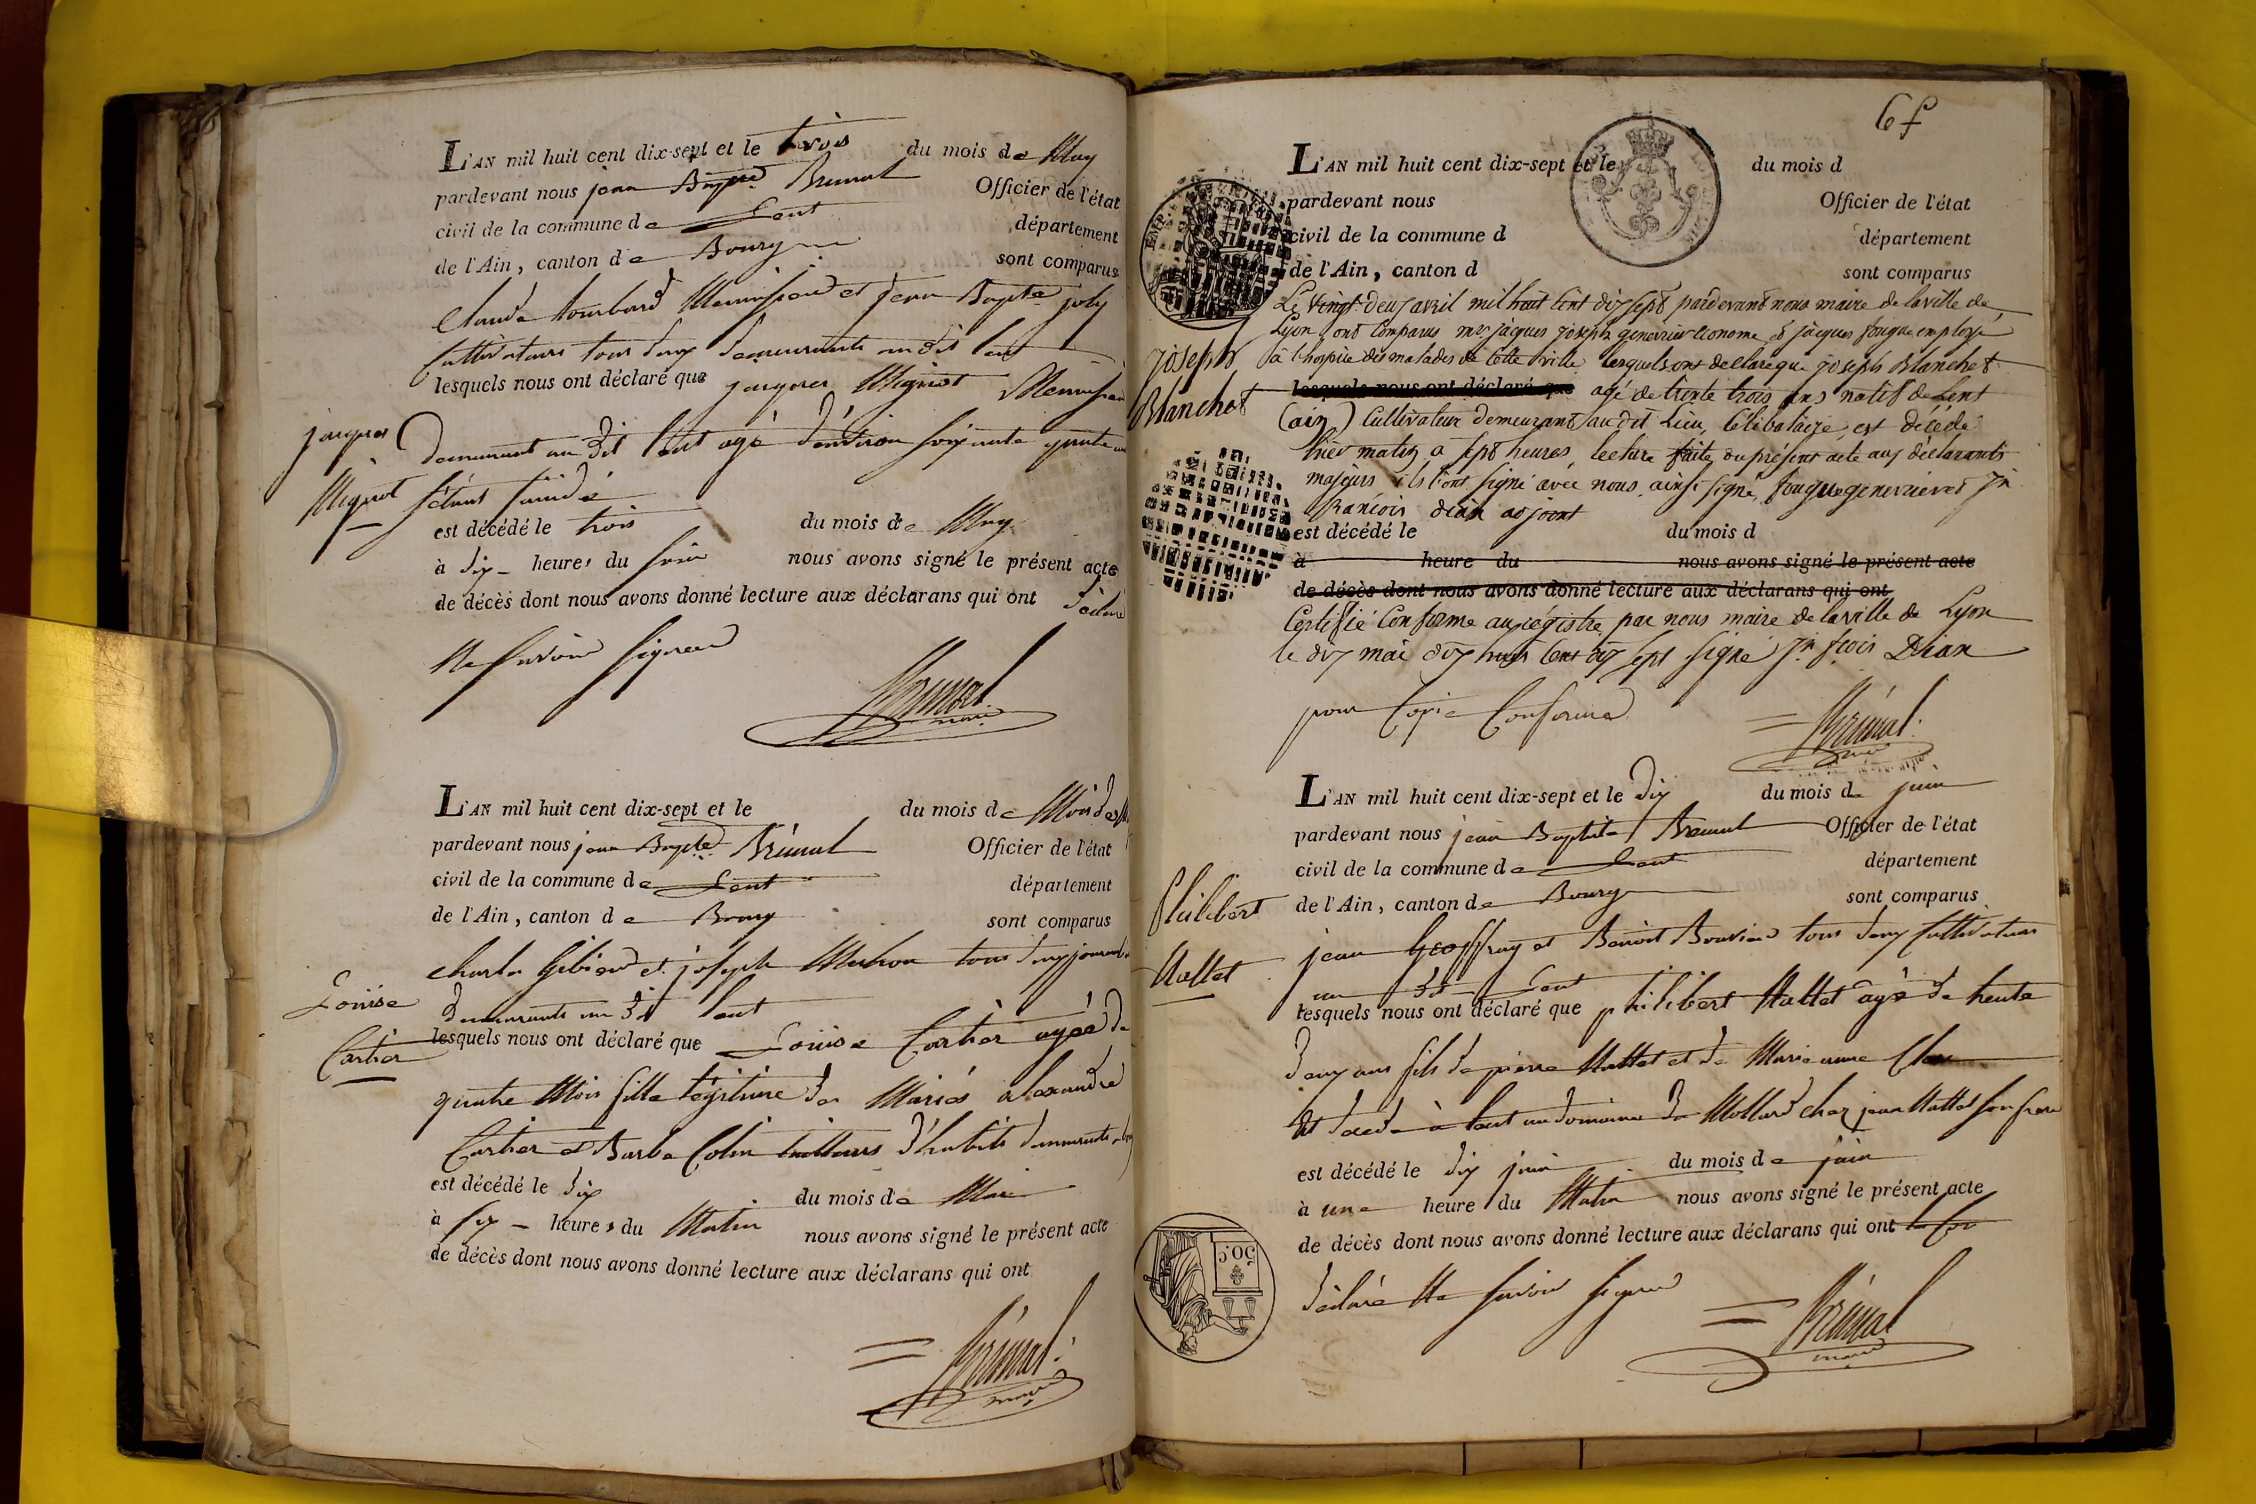 L'AN mil huit cent dix-sept et le trois du mois de May
pardevant nous jean Bapte Brunal Officier de l'état
civil de la commune de Lent département
de l'Ain, canton de Bourg sont comparus
Claude tombard Menuisier et jean Bapte joly
Cultivateurs tous deux demeurants au dit lent
lesquels nous ont déclaré que jacques Mignot Menuisier
jacques
Mignot
demeurant au dit lent agé d'environ soixante quatre ans
s'étant suicidé
est décédé le trois du mois de May
à dix heures du soir nous avons signé le présent acte
de décès dont nous avons donné lecture aux déclarans qui ont déclaré
Ne savoir signer
maire
L'AN mil huit cent dix-sept et le du mois de Mois de
pardevant nous jean Bapte Brunal Officier de l'état
civil de la commune de Lent département
de l'Ain, canton de Bourg sont comparus
Charles et joseph tous deux
demeurants au dit lent
Louise
Cartier
lesquels nous ont déclaré que Louise Cartier agée de
quatre Mois fille légitime des Mariés alexandre
Cartier et Barbe Colin tailleurs d'habits demeurants
est décédé le dix du mois de Mai
à six heures du Matin nous avons signé le présent acte
de décès dont nous avons donné lecture aux déclarans qui ont
maire
6 f
L'AN mil huit cent dix-sept et le du mois d
pardevant nous Officier de l'état
civil de la commune d département
de l'Ain, canton d sont comparus
Le vingt deux avril mil huit cent dix sept pardevant nous maire de la ville de
Lyon ont comparus mr. jacques joseph genevrier économe & jacques fougue employé
à l'hospice des malades de cette ville lesquels ont declaré que joseph Blanchet
joseph
Blanchet
lesquels nous ont déclaré que agé de trente trois ans natif de Lent
(ain) Cultivateur demeurant audit Lieu, Célibataire, est décédé
hier matin a sept heures, lecture faite du présent acte aux déclarants
majeurs ils l'ont signé avec nous, ainsi signé, fougue genevrier et jn
françois dian adjoint
est décédé le du mois d
à heure du nous avons signé le présent acte
de décès dont nous avons donné lecture aux déclarans qui ont
Certifié Conforme au registre par nous maire de la ville de Lyon
le dix mai dix huit cent dix sept signé jn fcois Dian
pour Copie Conforme
L'AN mil huit cent dix-sept et le dix du mois de juin
pardevant nous jean Baptiste Brunal Officier de l'état
civil de la commune de Lent département
de l'Ain, canton de Bourg sont comparus
philibert
Mallet
jean Geoffray et Benoit Bouvier tous deux Cultivateurs
au dit Lent
lesquels nous ont déclaré que philibert Mallet agé de trente
deux ans fils de pierre Mallet et de Marie anne
est décédé à lent au domaine de Mollard chez jean Mallet son frere
est décédé le dix juin du mois de juin
à une heure du Matin nous avons signé le présent acte
de décès dont nous avons donné lecture aux déclarans qui ont
déclaré Ne savoir signer
maire
50 c